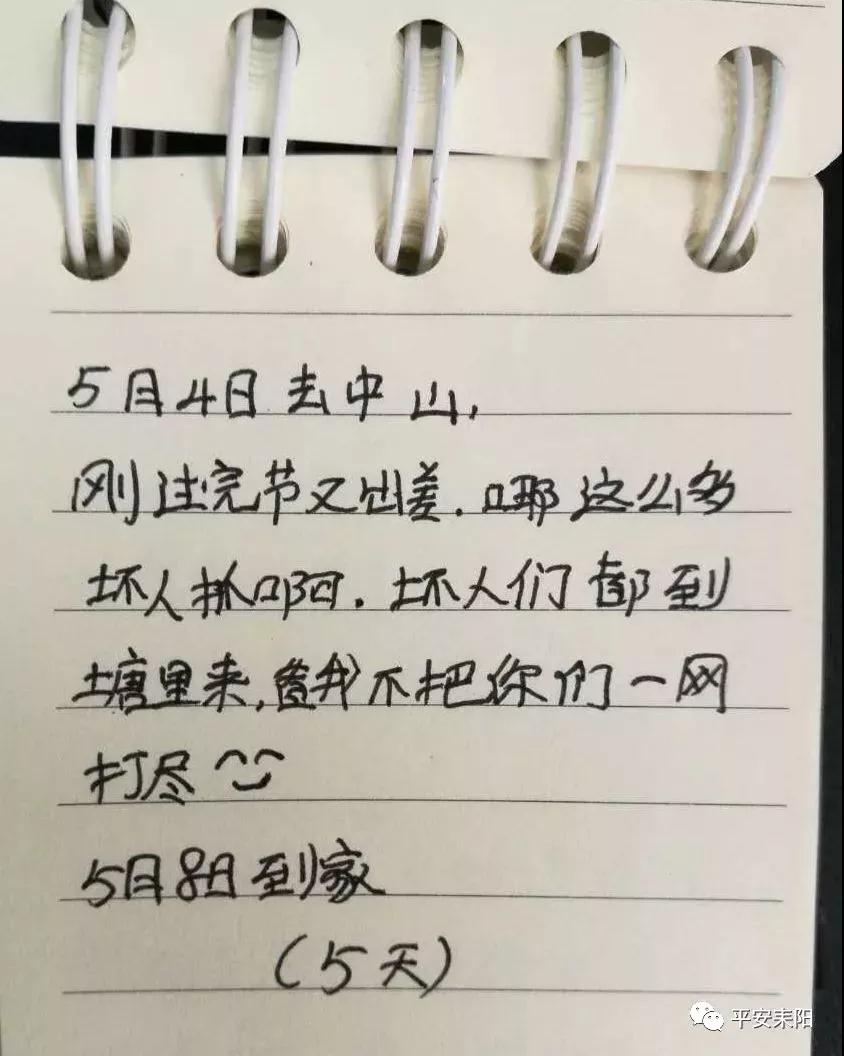 5月4日去中山,
刚过完节又出差.哪这么多
坏人抓啊.坏人们都到
塘里来,看我不把你们一网
打尽^‿^
5月8日到家
(5天)
平安耒阳